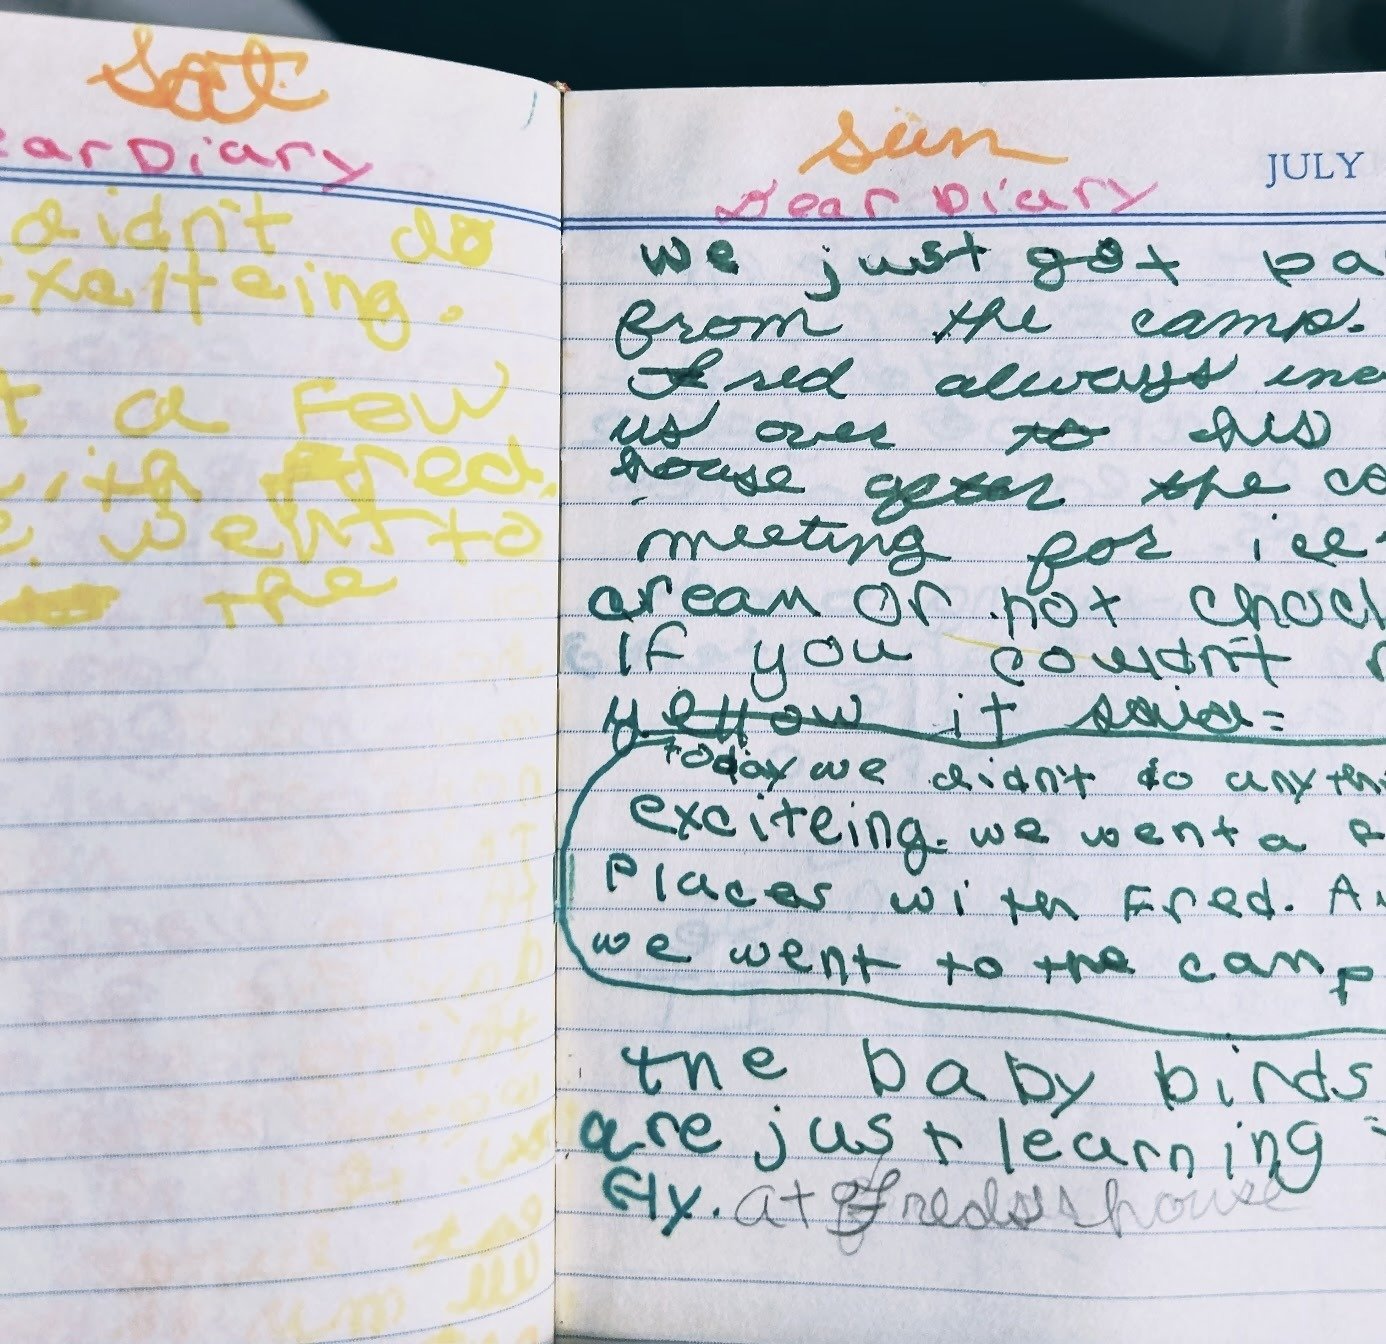 Sat
ear Diary
didn't do
exciteing.
t a few
with Fred.
e went to
the
Sun
JULY
Dear Diary
we just got ba
from the camp.
Fred always inv
us over to his
house after the ca
meeting for ice-
cream or hot choc
If you couldn't r
yellow it said=
Today we didn't do anythi
exciteing. we went a f
Places with Fred. An
we went to the camp
the baby birds
are just learning
fly. at Freds house